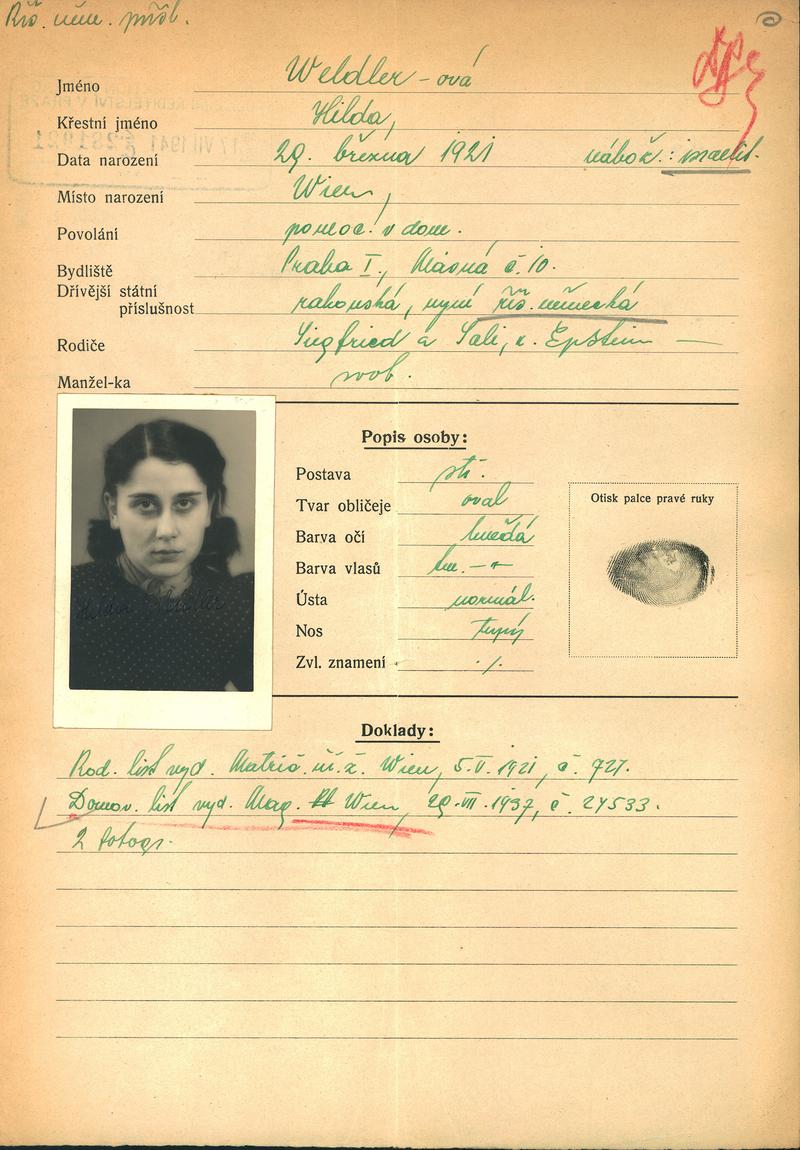 Říš. něm. přísl.
Jméno Weldler-ová
Křestní jméno Hilda,
Data narození 29. března 1921 nábož.: israelit.
Místo narození Wien,
Povolání pomoc. v dom.
Bydliště Praha I., Masná č. 10.
Dřívější státní
příslušnost rakouská, nyní říš. německá
Rodiče Siegfried a Sali, r. Epstein —
Manžel-ka svob.
Popis osoby:
Postava stř.
Tvar obličeje oval
Barva očí hnědá
Barva vlasů hn. -"-
Ústa normál.
Nos tupý
Zvl. znamení ./.
Otisk palce pravé ruky
Doklady:
Rod. list vyd. Matrič. úř. ž. Wien, 5.V.1921, č. 727.
Domov. list vyd. Mag. Wien, 29.VII.1937, č. 24533.
2 fotogr.